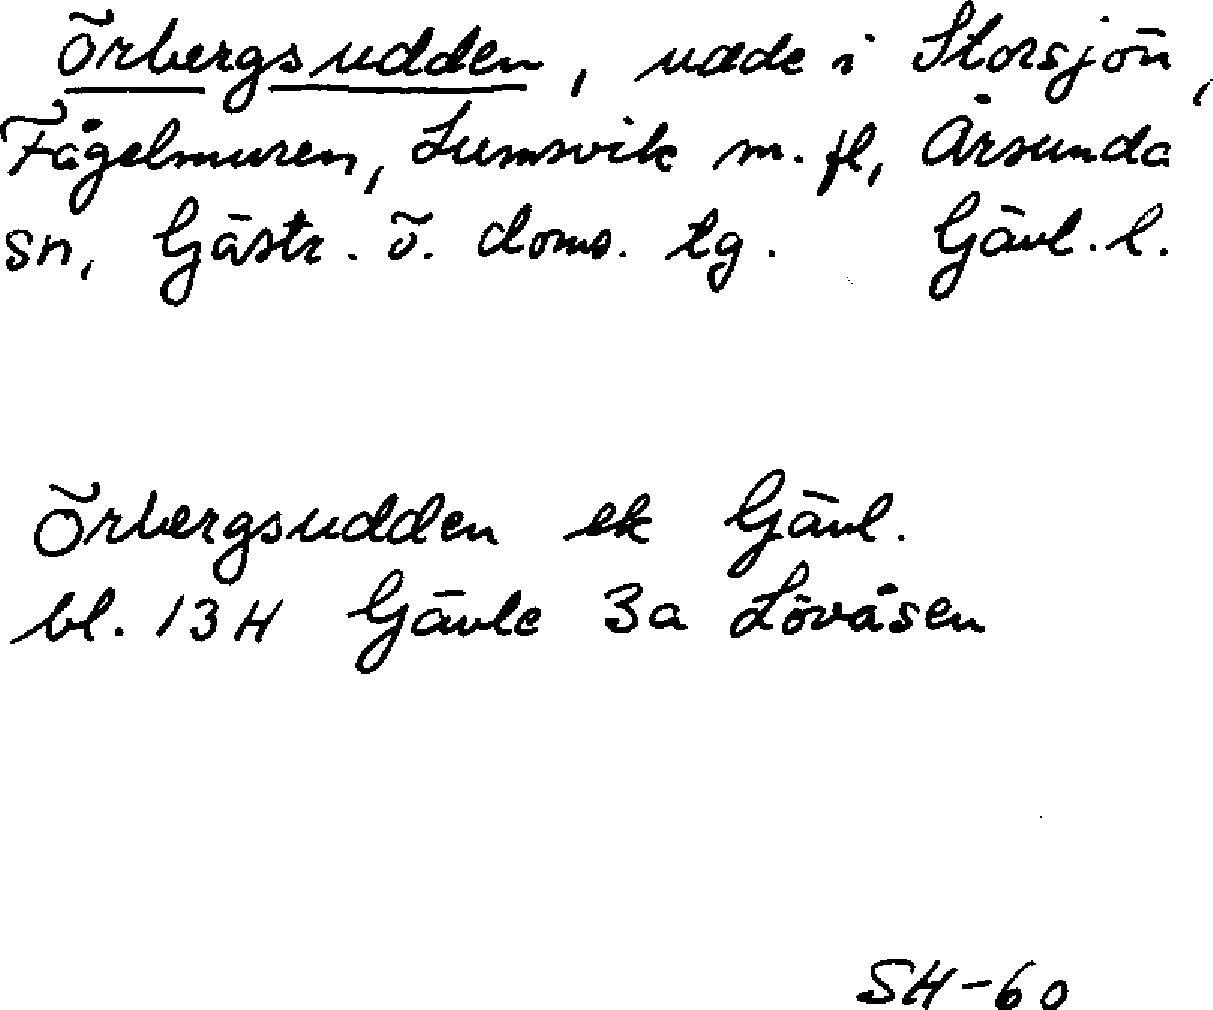 Örbergsudden, udde i Storsjön,
Fågelmuren, Lumsvik m. fl, Årsunda
sn, Gästr. ö. doms. tg. Gävl. l.
Örbergsudden ek Gävl.
bl. 13H Gävle 3a Lövåsen
SH-60